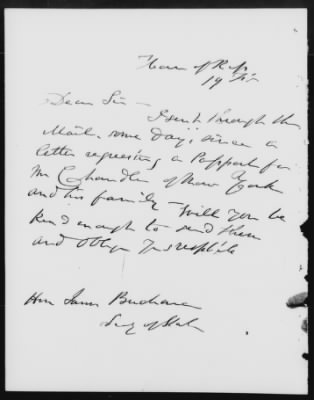 House of Reps
19 Feb
Dear Sir —
I sent through the
Mail, some days since a
letter requesting a Passport for
Mr Chandler of New York
and his family — Will you be
kind enough to send them
and oblige Yrs respfly
Hon James Buchanan
Secy of State